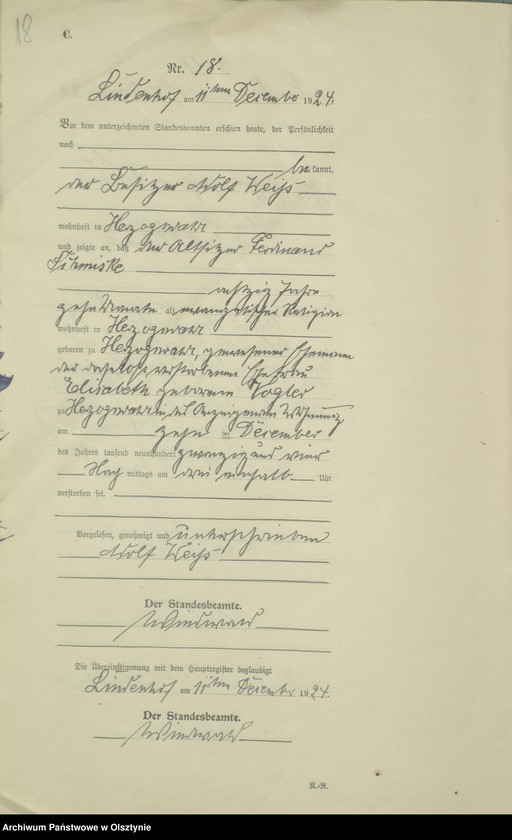 18
C.
Nr. 18.
Lindenhof am 11ten December 1924.
Vor dem unterzeichneten Standesbeamten erschien heute, der Persönlichkeit
nach
bekannt,
der Besitzer Adolf Weiß
wohnhaft in Herzogswalde
und zeigte an, daß der Altsitzer Ferdinand
achtzig Jahre
zehn Monate alt evangelischer Religion
wohnhaft in Herzogswalde
geboren zu Herzogswalde, gewesener Ehemann
der daselbst verstorbenen Ehefrau
Elisabeth geborene Vogler
zu Herzogswalde in des Anzeigenden Wohnung
am zehn ten December
des Jahres tausend neunhundert zwanzig und vier
Nach mittags um drei einhalb Uhr
verstorben sei.
Vorgelesen, genehmigt und unterschrieben
Adolf Weiß
Der Standesbeamte.
Windwald
Die Übereinstimmung mit dem Hauptregister beglaubigt
Lindenhof am 11ten December 1924
Der Standesbeamte.
Windwald
Archiwum Państwowe w Olsztynie